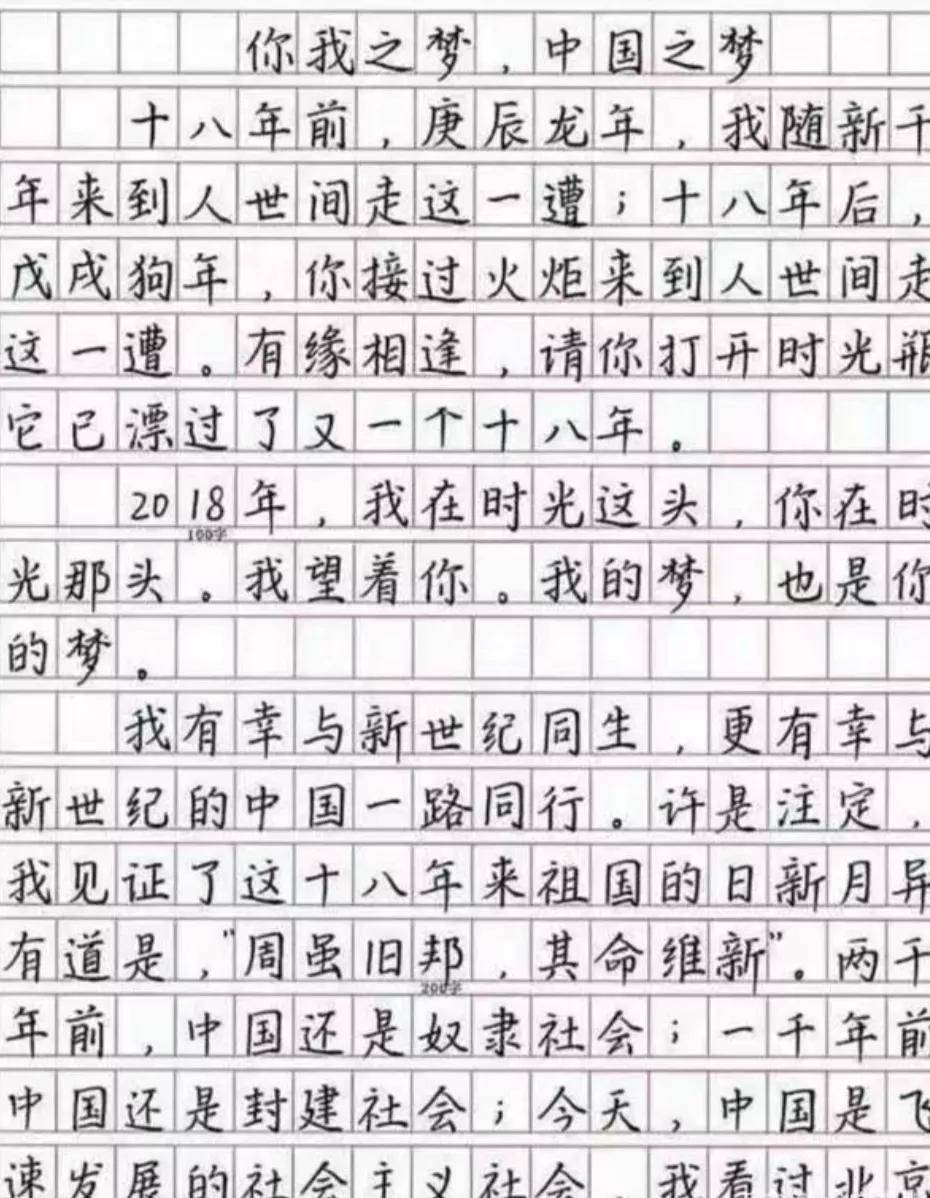 你我之梦，中国之梦
十八年前，庚辰龙年，我随新千
年来到人世间走这一遭；十八年后，
戊戌狗年，你接过火炬来到人世间走
这一遭。有缘相逢，请你打开时光瓶
它已漂过了又一个十八年。
2018年，我在时光这头，你在时
100字
光那头。我望着你。我的梦，也是你
的梦。
我有幸与新世纪同生，更有幸与
新世纪的中国一路同行。许是注定，
我见证了这十八年来祖国的日新月异
有道是，"周虽旧邦，其命维新"。两千
200字
年前，中国还是奴隶社会；一千年前
中国还是封建社会；今天，中国是飞
速发展的社会主义社会。我看过北京